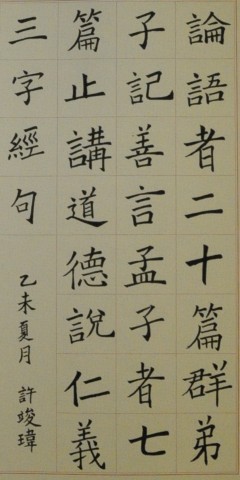 論語者二十篇群弟
子記善言孟子者七
篇止講道德說仁義
三字經句
乙未夏月 許竣瑋